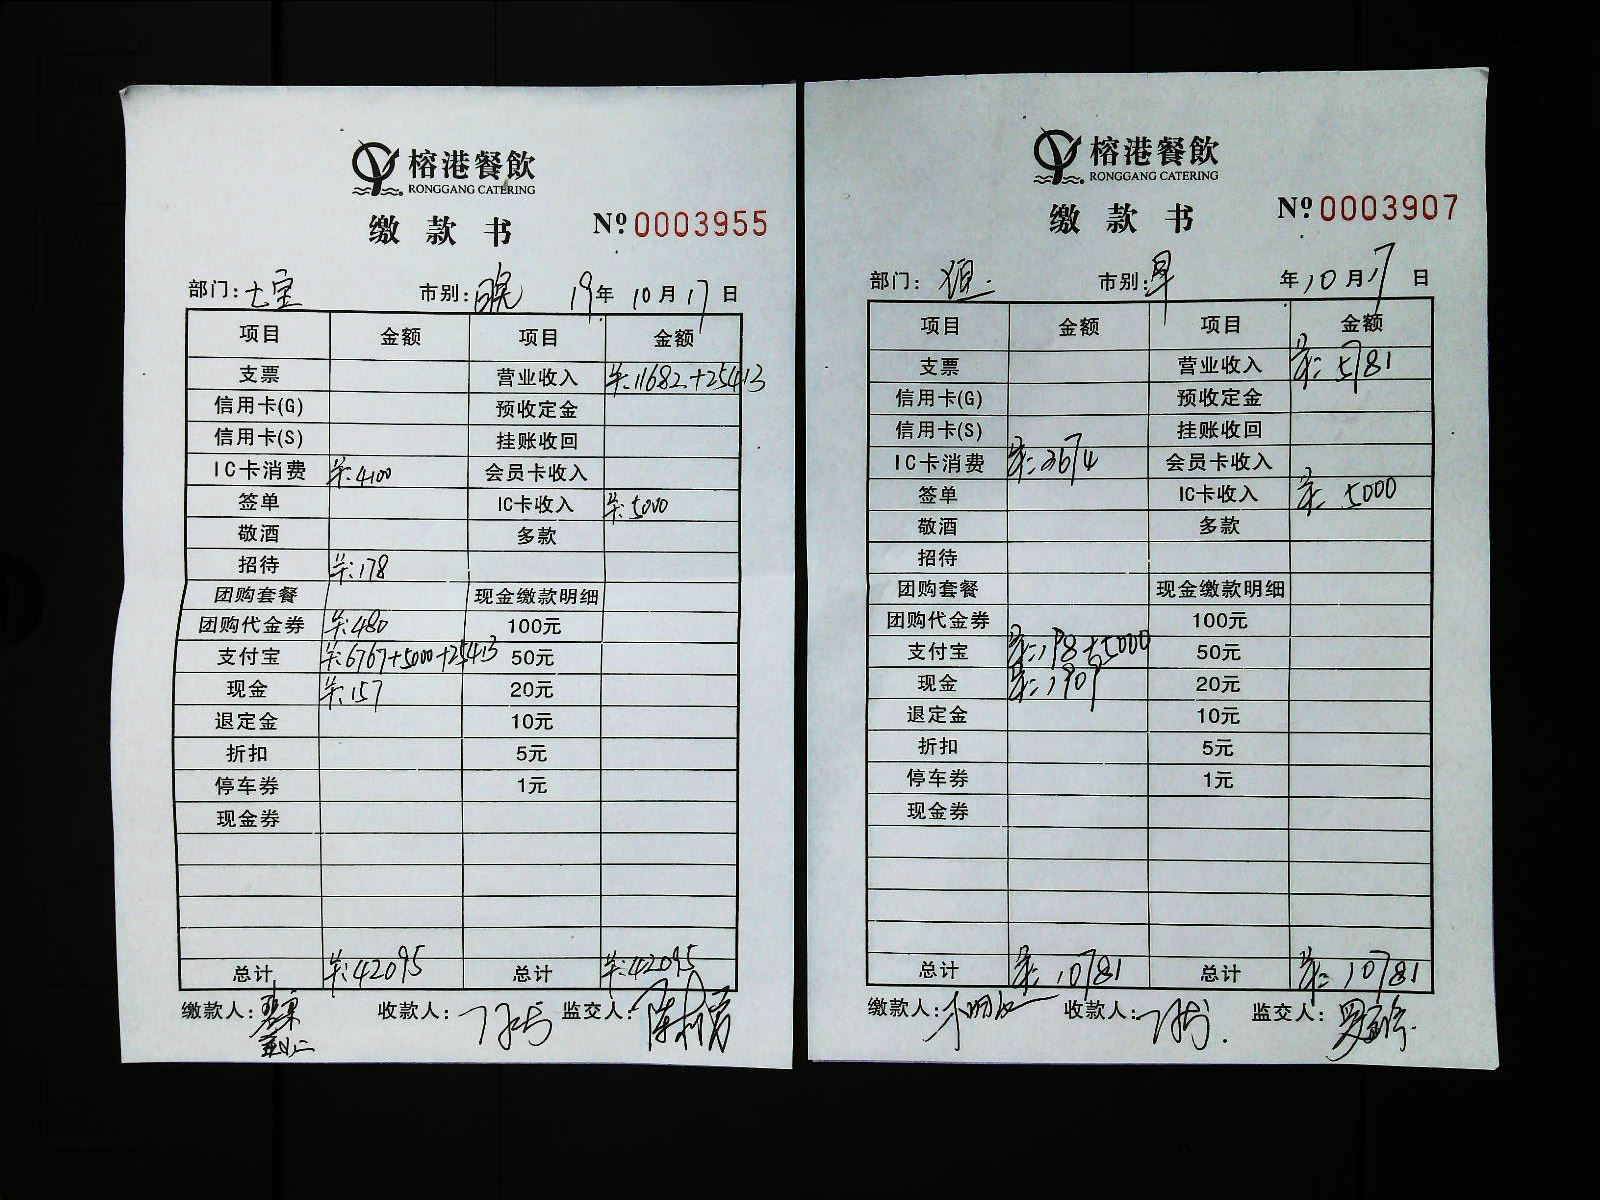 榕港餐飲
RONGGANG CATERING
缴款书 № 0003955
部门:七宝 市别:晚 19年10月17日
项目 金额 项目 金额
支票 营业收入 半:11682+25413
信用卡(G) 预收定金
信用卡(S) 挂账收回
IC卡消费 半:4100 会员卡收入
签单 IC卡收入 半:5000
敬酒 多款
招待 半:178
团购套餐 现金缴款明细
团购代金券 半:480 100元
支付宝 半:6767+5000+25413 50元
现金 半:157 20元
退定金 10元
折扣 5元
停车券 1元
现金券
总计 半:42095 总计 半:42095
缴款人: 收款人: 监交人:
榕港餐飲
RONGGANG CATERING
缴款书 № 0003907
部门: 市别:早 年10月17日
项目 金额 项目 金额
支票 营业收入 5781
信用卡(G) 预收定金
信用卡(S) 挂账收回
IC卡消费 3674 会员卡收入
签单 IC卡收入 5000
敬酒 多款
招待
团购套餐 现金缴款明细
团购代金券 100元
支付宝 198+5000 50元
现金 1909 20元
退定金 10元
折扣 5元
停车券 1元
现金券
总计 10781 总计 10781
缴款人: 收款人: 监交人: